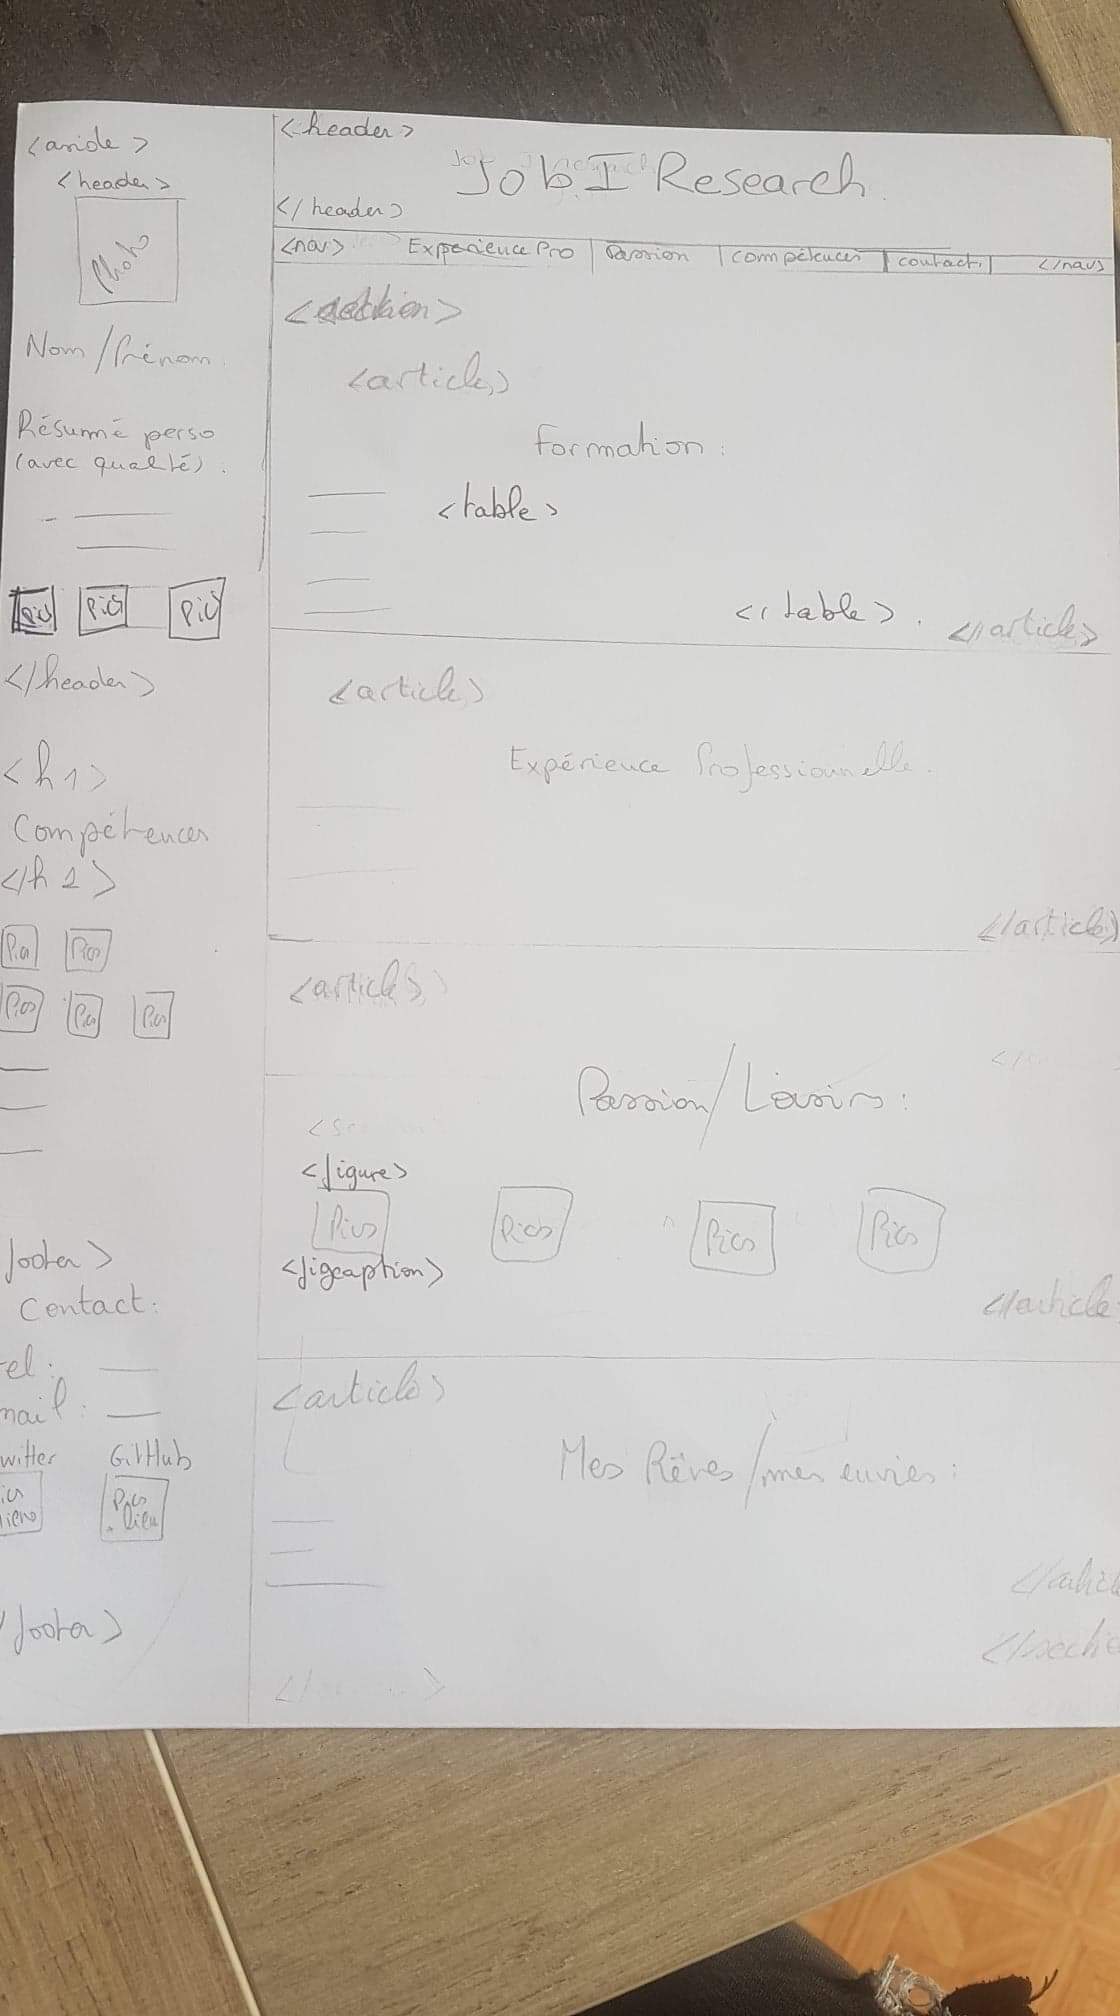 <aside>
<header>
Photo
Nom/Prénom
Résumé perso
(avec qualité).
Pics Pics Pics
</header>
<h1>
Compétences
</h1>
Pics Pics
Pics Pics Pics
footer>
Contact:
el:
mail:
witter GitHub
ics Pics
liens lien
/footer>
<header>
Job I Research
</header>
<nav> Experience Pro Passion compétences contact </nav>
<section>
<article>
Formation:
<table>
</table>.
</article>
<article>
Expérience Professionnelle.
</article>
<article>
Passion/Loisirs:
<figure>
Pics Pics Pics Pics
<figcaption>
</article
<article>
Mes Rêves/mes envies:
</article
</section